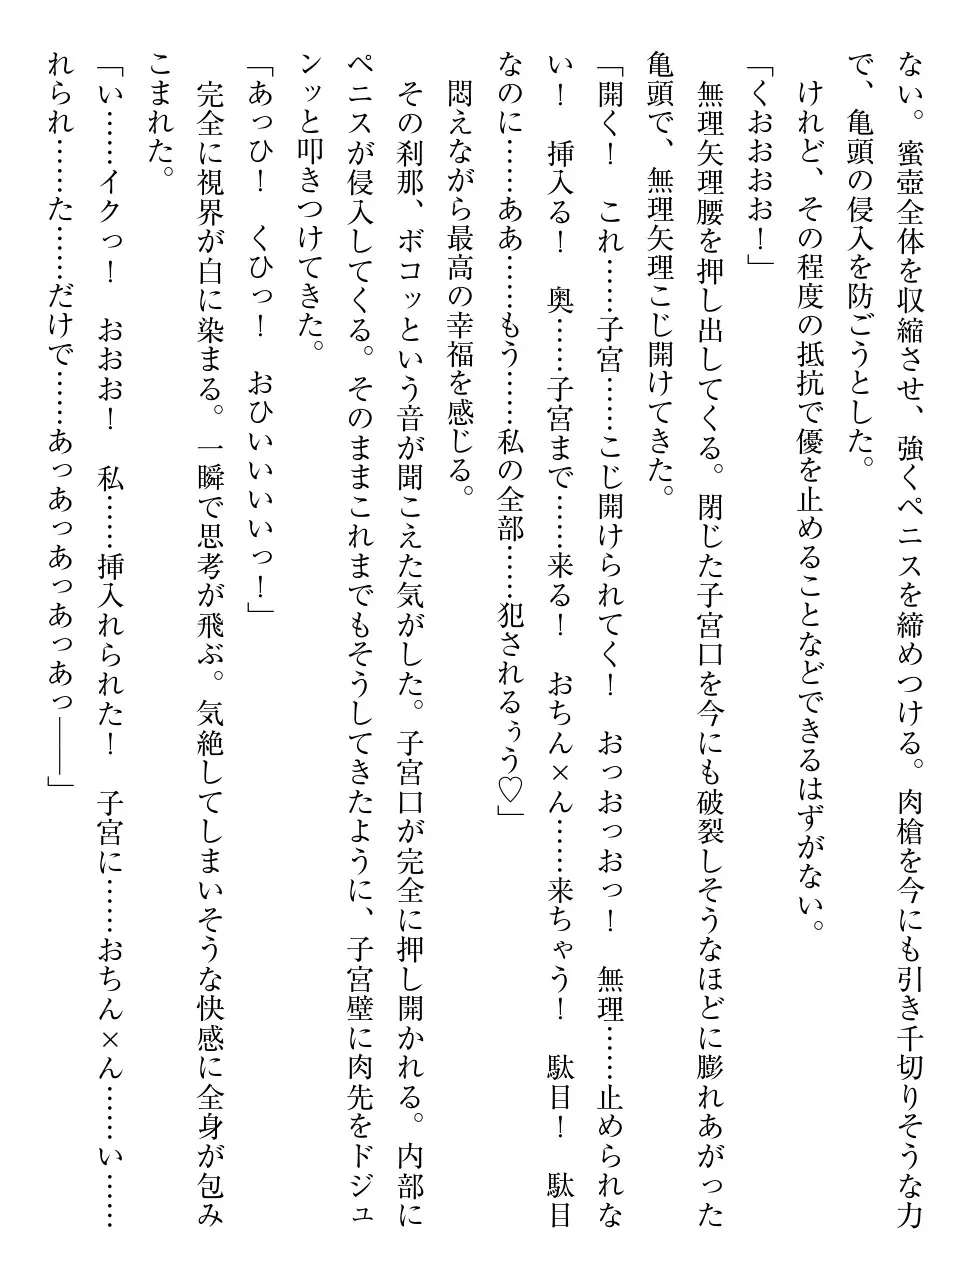 ない。蜜壺全体を収縮させ、強くペニスを締めつける。肉槍を今にも引き千切りそうな力
で、亀頭の侵入を防ごうとした。
けれど、その程度の抵抗で優を止めることなどできるはずがない。
「くおおおお!」
無理矢理腰を押し出してくる。閉じた子宮口を今にも破裂しそうなほどに膨れあがった
亀頭で、無理矢理こじ開けてきた。
「開く! これ……子宮……こじ開けられてく! おっおっおっ! 無理……止められな
い! 挿入る! 奥……子宮まで……来る! おちん×ん……来ちゃう! 駄目! 駄目
なのに……ああ……もう……私の全部……犯されるぅう♡」
悶えながら最高の幸福を感じる。
その刹那、ボコッという音が聞こえた気がした。子宮口が完全に押し開かれる。内部に
ペニスが侵入してくる。そのままこれまでもそうしてきたように、子宮壁に肉先をドジュ
ンッと叩きつけてきた。
「あっひ! くひっ! おひいいいいっ!」
完全に視界が白に染まる。一瞬で思考が飛ぶ。気絶してしまいそうな快感に全身が包み
こまれた。
「い……イクっ! おおお! 私……挿入れられた! 子宮に……おちん×ん……い……
れられ……た……だけで……あっあっあっあっあっ――」